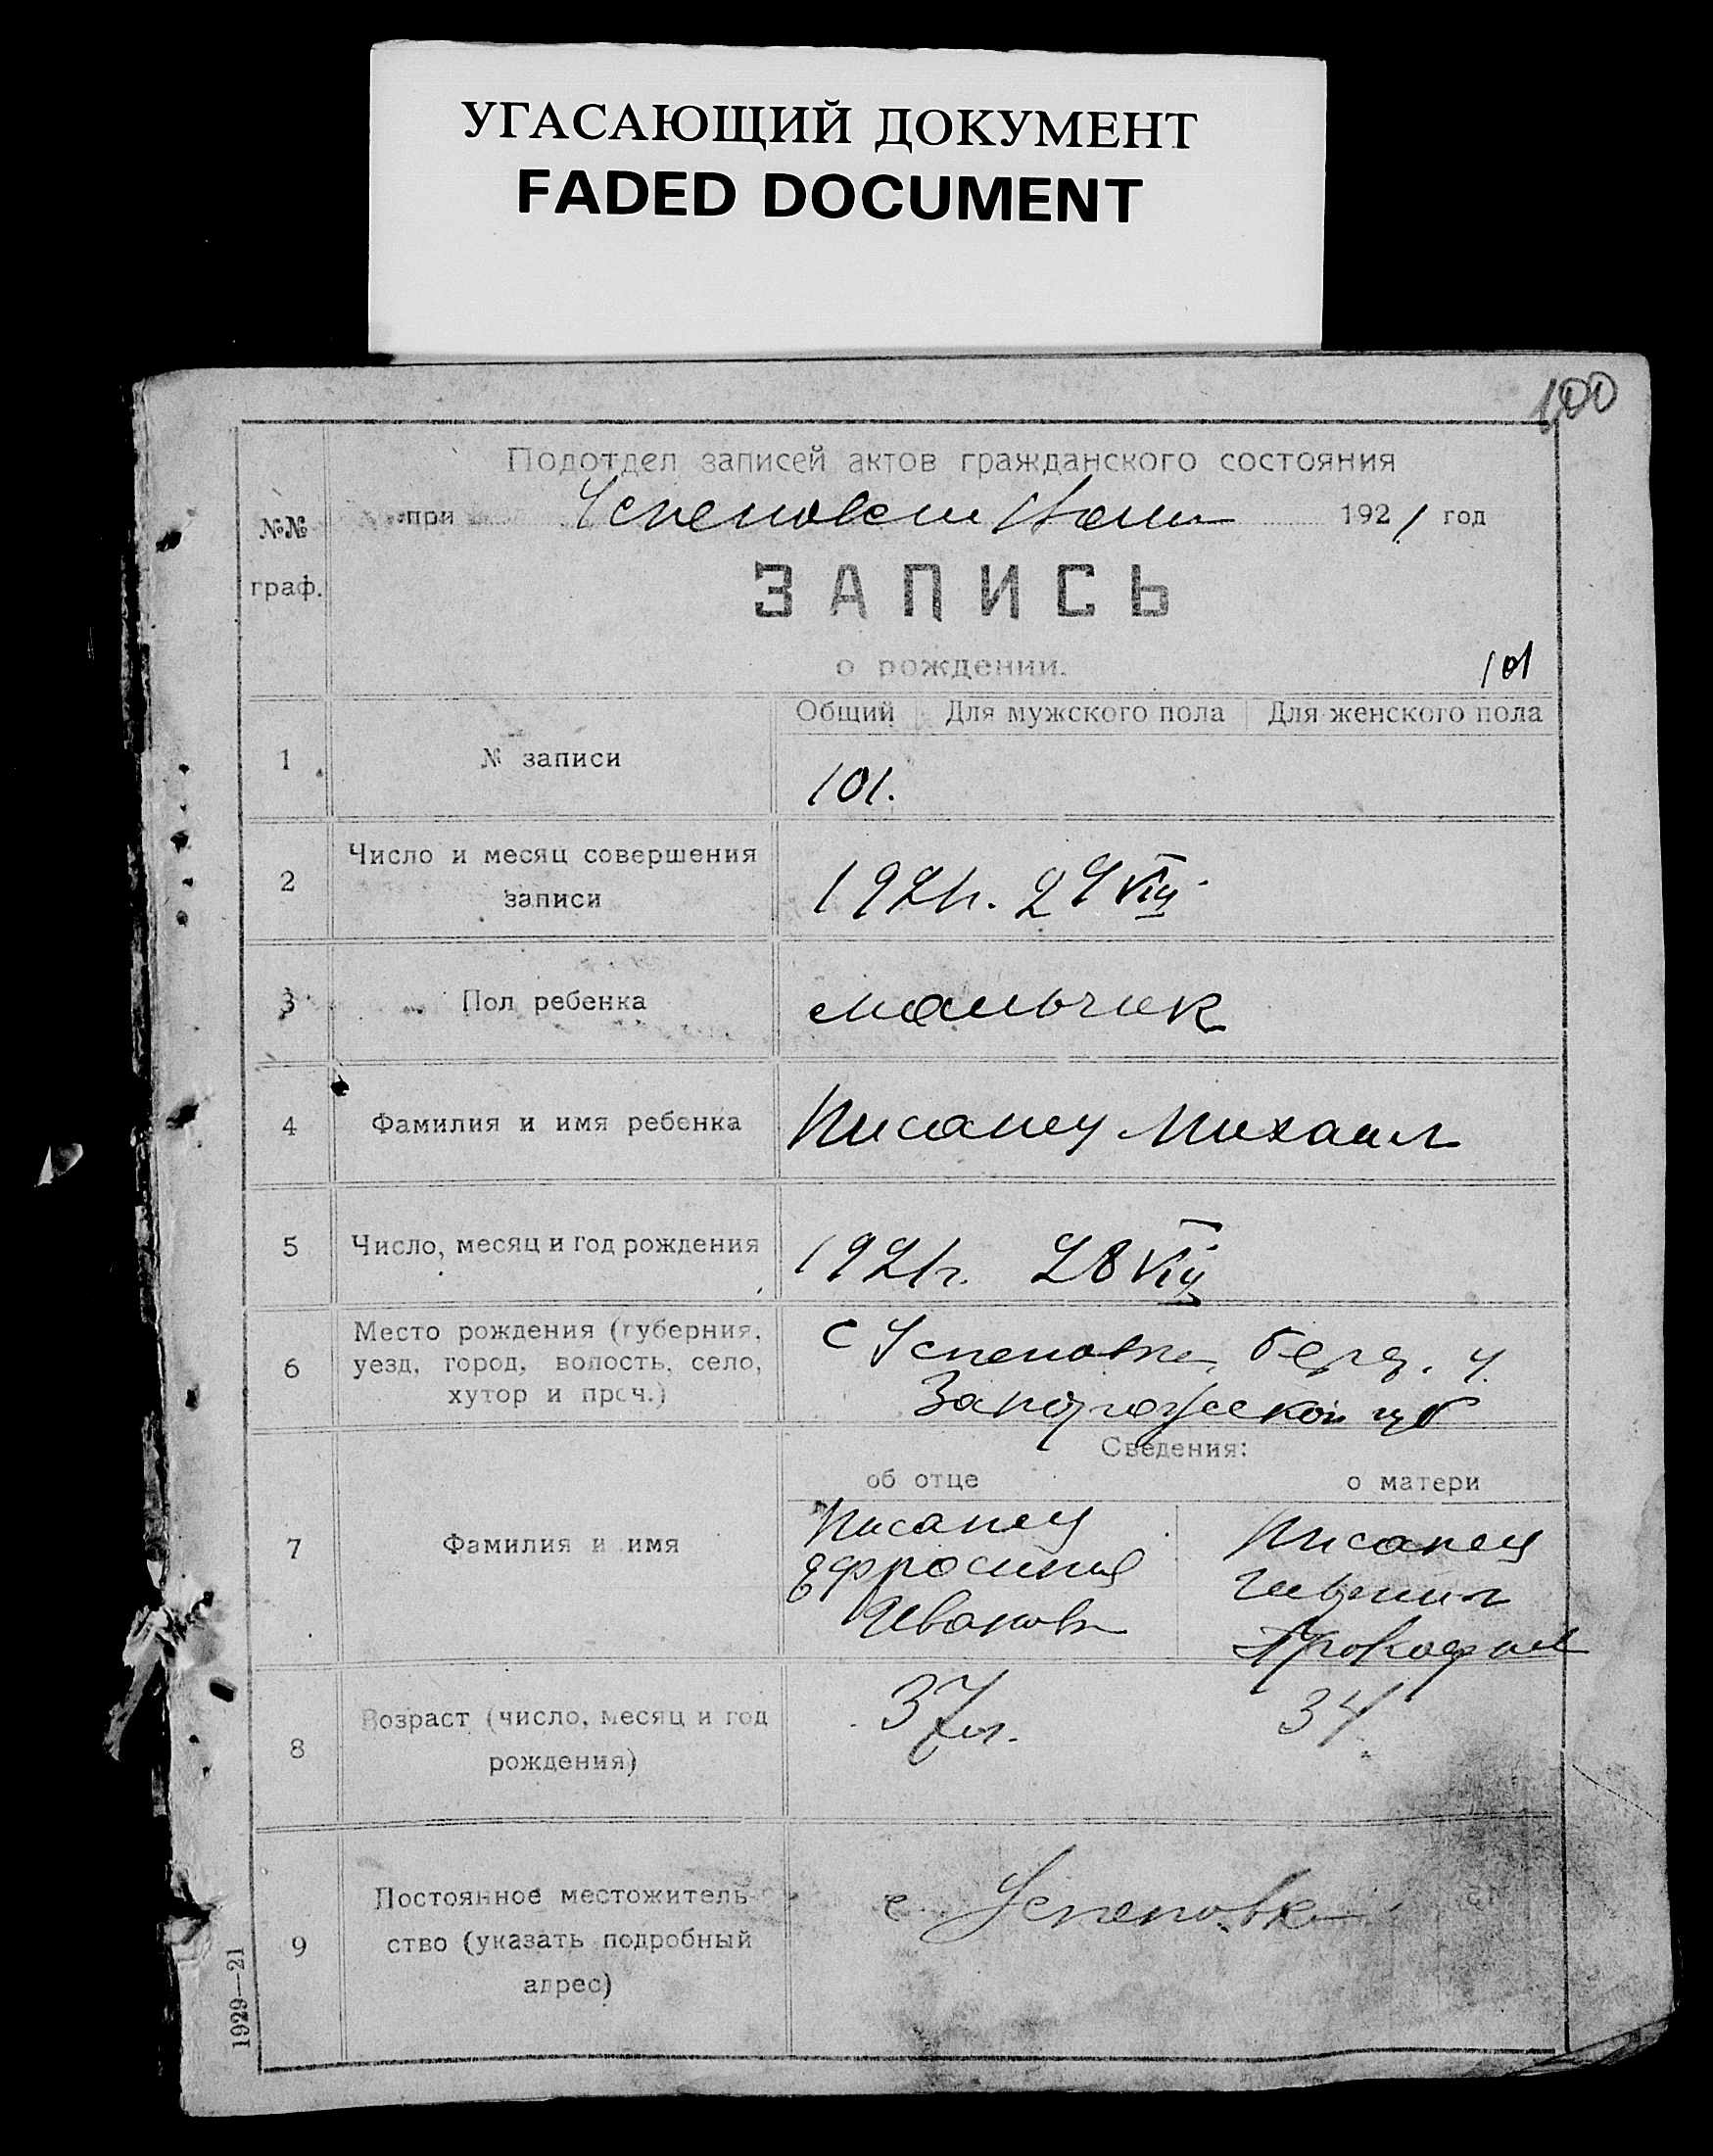 УГАСАЮЩИЙ ДОКУМЕНТ
FADED DOCUMENT
100
Подотдел записей актов гражданского состояния
№№ граф.
при Успеновском 1921 год
ЗАПИСЬ
о рождении.
101
Общий Для мужского пола Для женского пола
1 № записи 101.
2 Число и месяц совершения записи 1921г. 29 VIII
3 Пол ребенка мальчик
4 Фамилия и имя ребенка Писанец Михаил
5 Число, месяц и год рождения 1921г. 28 VIII
6 Место рождения (губерния, уезд, город, волость, село, хутор и проч.)
с Успеновка, берд. у.
Запорожской губ
Сведения:
об отце о матери
7 Фамилия и имя
Писанец Ефросиния Иванов
Писанец
8 Возраст (число, месяц и год рождения) 37 л. 34
9 Постоянное местожительство (указать подробный адрес)
с. Успеновка
1929—21